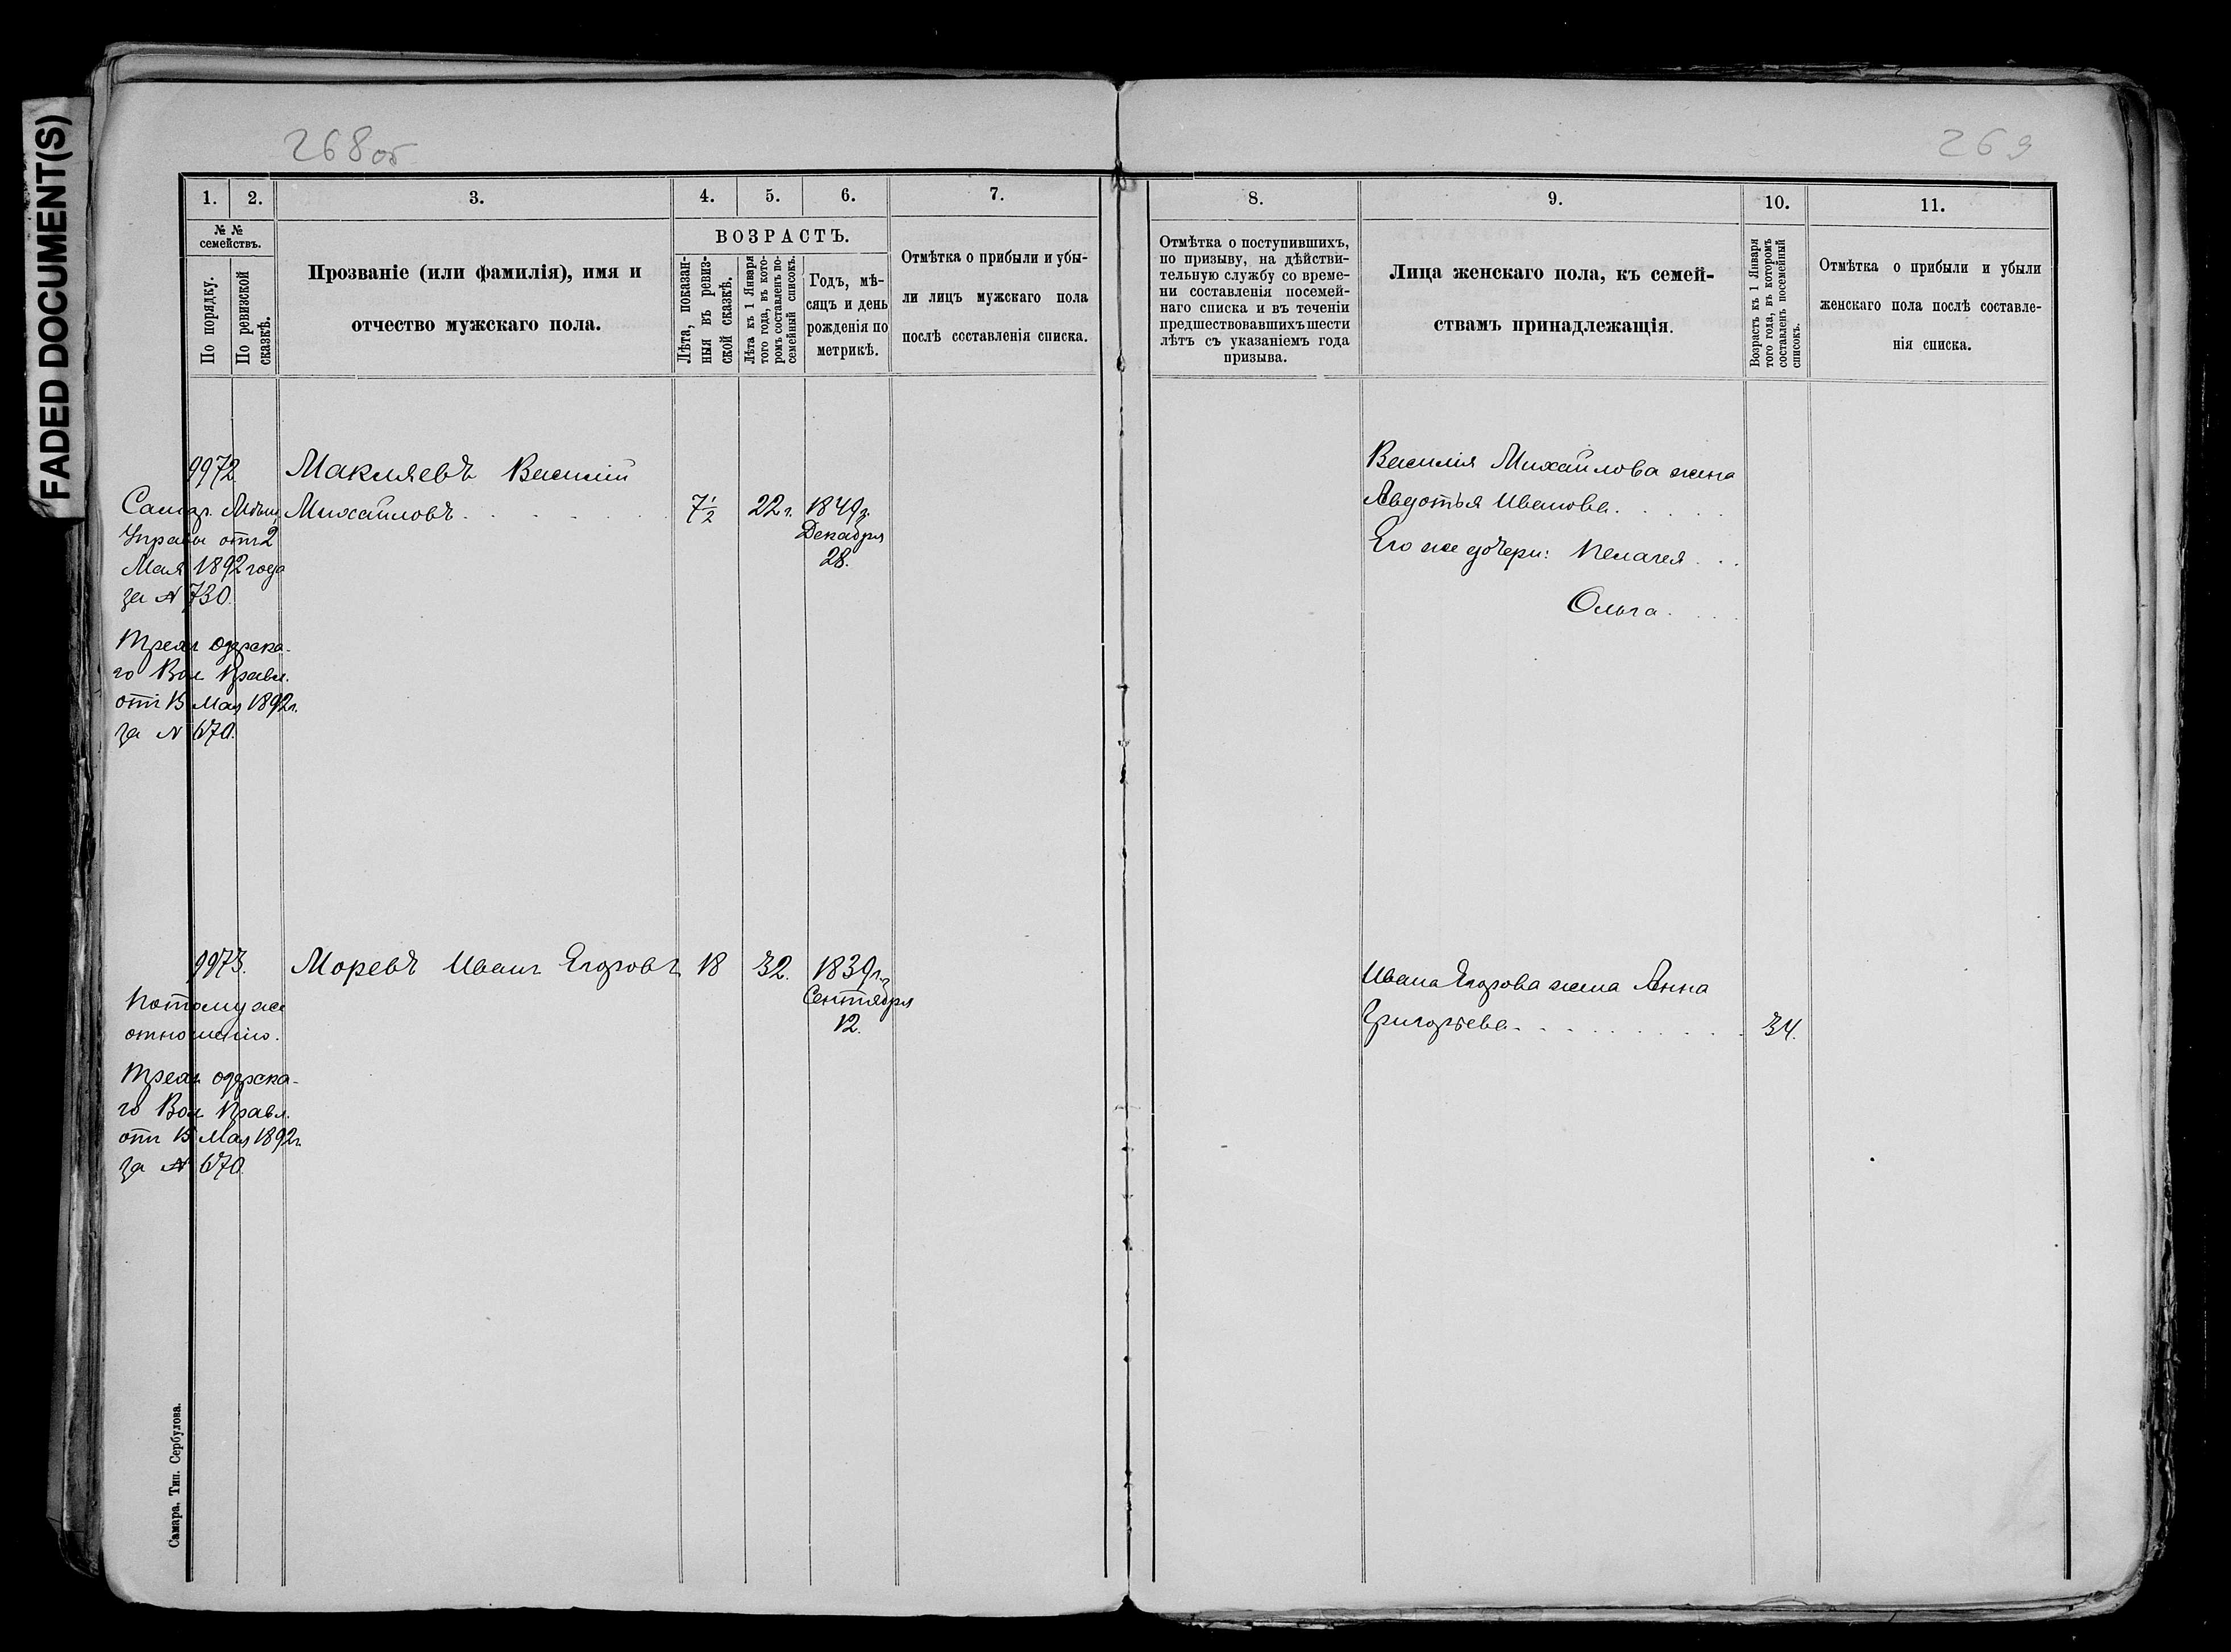 FADED DOCUMENT(S)
268об
1.
2.
3.
4.
5.
6.
7.
№ №
семействъ.
По порядку.
По ревизской
сказкѣ.
Прозваніе (или фамилія), имя и
отчество мужскаго пола.
ВОЗРАСТЪ.
Лѣта, показан-
ныя въ ревиз-
ской сказкѣ.
Лѣта къ 1 Января
того года, въ кото-
ромъ составленъ по-
семейный списокъ.
Годъ, мѣ-
сяцъ и день
рожденія по
метрикѣ.
Отмѣтка о прибыли и убы-
ли лицъ мужскаго пола
послѣ составленія списка.
9972.
Макляевъ Василій
Михайловъ.
7½
22 г.
1849 г.
Декабря
28.
Самар. Мѣщ.
Управы отъ 2
Мая 1892 года
за № 730.
озерска-
го Вол Правл.
отъ 15 Мая 1892 г.
за № 670.
9973.
Моревъ Иванъ Егоровъ
18
32.
1839 г.
Сентября
12.
Потому же
отношенію.
озерска-
го Вол Правл.
отъ 15 Мая 1892 г.
за № 670.
Самара. Тип. Сербулова.
269
8.
9.
10.
11.
Отмѣтка о поступившихъ,
по призыву, на дѣйстви-
тельную службу со време-
ни составленія посемей-
наго списка и въ теченіи
предшествовавшихъ шести
лѣтъ съ указаніемъ года
призыва.
Лица женскаго пола, къ семей-
ствамъ принадлежащія.
Возрастъ къ 1 Января
того года, въ которомъ
составленъ посемейный
списокъ.
Отмѣтка о прибыли и убыли
женскаго пола послѣ составле-
нія списка.
Василія Михайлова жена
Авдотья Иванова.
Его же дочери: Пелагея
Ольга.
Ивана Егорова жена Анна
Григорьева
34.